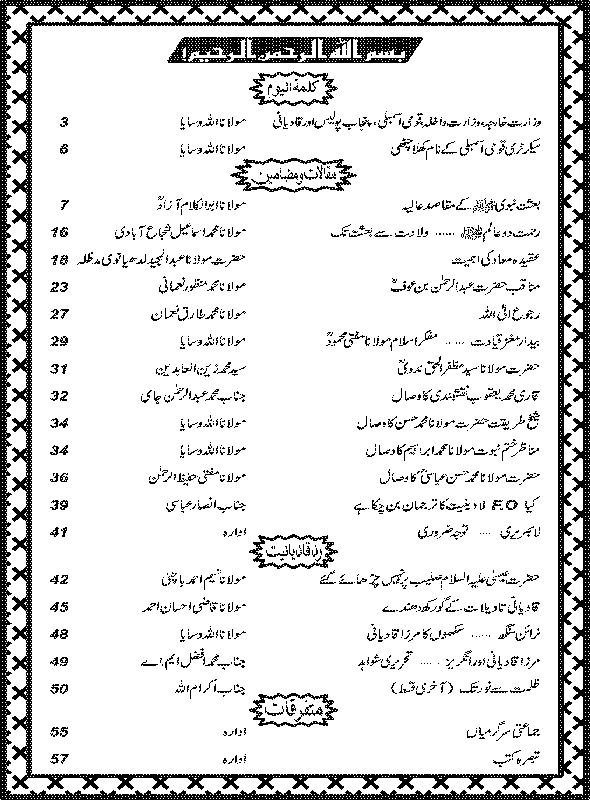 بسم اللہ الرحمن الرحیم
کلمۃ الیوم
وزارت خارجہ، وزارت داخلہ، قومی اسمبلی، پنجاب پولیس اور قادیانی مولانا اللہ وسایا 3
سیکرٹری قومی اسمبلی کے نام کھلا چٹھی مولانا اللہ وسایا 6
مقالات ومضامین
بعثت نبوی ﷺ کے مقاصد عالیہ مولانا ابوالکلام آزادؒ 7
رحمت دو عالم ﷺ ...... ولادت سے بعثت تک مولانا محمد اسماعیل شجاع آبادی 16
عقیدہ معاد کی اہمیت حضرت مولانا عبدالمجید لدھیانوی مدظلہ 18
مناقب حضرت عبدالرحمٰن بن عوفؓ مولانا محمد منظور نعمانی 23
رجوع الی اللہ مولانا محمد طارق نعمان 27
بیدار مغز قیادت ...... مفکر اسلام مولانا مفتی محمودؒ مولانا اللہ وسایا 29
حضرت مولانا سید مظفر الحق ندویؒ سید محمد زین العابدین 31
قاری محمد یعقوب نقشبندی کا وصال جناب محمد عبدالرحمٰن جامی 32
شیخ طریقت حضرت مولانا محمد حسن کا وصال مولانا اللہ وسایا 34
مناظر ختم نبوت مولانا محمد ابراہیم کا وصال مولانا اللہ وسایا 34
حضرت مولانا محمد حسن عباسیؒ کا وصال مولانا مفتی حفیظ الرحمٰن 36
کیا لادینیت کا ترجمان بن چکا ہے جناب انصار عباسی 39
لائبریری .... توجہ ضروری ادارہ 41
رد قادیانیت
حضرت عیسیٰ علیہ السلام صلیب پر نہیں چڑھائے گئے مولانا نسیم احمد 42
قادیانی تاویلات کے گورکھ دھندے مولانا قاضی احسان احمد 45
نرائن سنگھ ...... سکھوں کا مرزا قادیانی مولانا اللہ وسایا 48
مرزا قادیانی اور انگریز ...... تحریری شواہد جناب محمد افضل ایم اے 49
ظلمت سے نور تک (آخری قسط) جناب اکرام اللہ 50
متفرقات
جماعتی سرگرمیاں ادارہ 55
تبصرہ کتب ادارہ 57